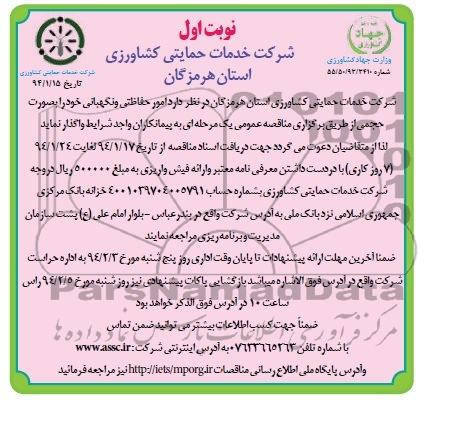 نوبت اول
شرکت خدمات حمایتی کشاورزی
استان هرمزگان
جهاد
وزارت جهاد کشاورزی
شماره ۵۵/۵۰/۹۳/۲۴۱۰
شرکت خدمات حمایتی کشاورزی
تاریخ ۹۴/۱/۱۵
شرکت خدمات حمایتی کشاورزی استان هرمزگان در نظر دارد امور حفاظتی ونگهبانی خود را بصورت
حجمی از طریق برگزاری مناقصه عمومی یک مرحله ای به پیمانکاران واجد شرایط واگذار نماید
لذا از متقاضیان دعوت می گردد جهت دریافت اسناد مناقصه از تاریخ ۹۴/۱/۱۷ لغایت ۹۴/۱/۲۴
(۷ روز کاری) با در دست داشتن معرفی نامه معتبر وارائه فیش واریزی به مبلغ ۵۰۰۰۰۰ ریال در وجه
شرکت خدمات حمایتی کشاورزی بشماره حساب ۴۰۰۱۰۳۹۷۰۴۰۰۵۷۹۱ خزانه بانک مرکزی
جمهوری اسلامی نزد بانک ملی به آدرس شرکت واقع در بندرعباس - بلوار امام علی (ع) پشت سازمان
مدیریت و برنامه ریزی مراجعه نمایند
ضمنا آخرین مهلت ارائه پیشنهادات تا پایان وقت اداری روز پنج شنبه مورخ ۹۴/۲/۳ به اداره حراست
شرکت واقع در آدرس فوق الاشاره میباشد بازگشایی پاکات پیشنهادی نیز روز شنبه مورخ ۹۴/۲/۵ راس
ساعت ۱۰ در آدرس فوق الذکر خواهد بود
ضمناً جهت کسب اطلاعات بیشتر می توانید ضمن تماس
با شماره تلفن ۰۷۶۳۳۶۶۵۲۶۴ به آدرس اینترنتی شرکت: www.assc.ir
وآدرس پایگاه ملی اطلاع رسانی مناقصات http://iets/mporg.ir نیز مراجعه فرمائید
ParsNamadData